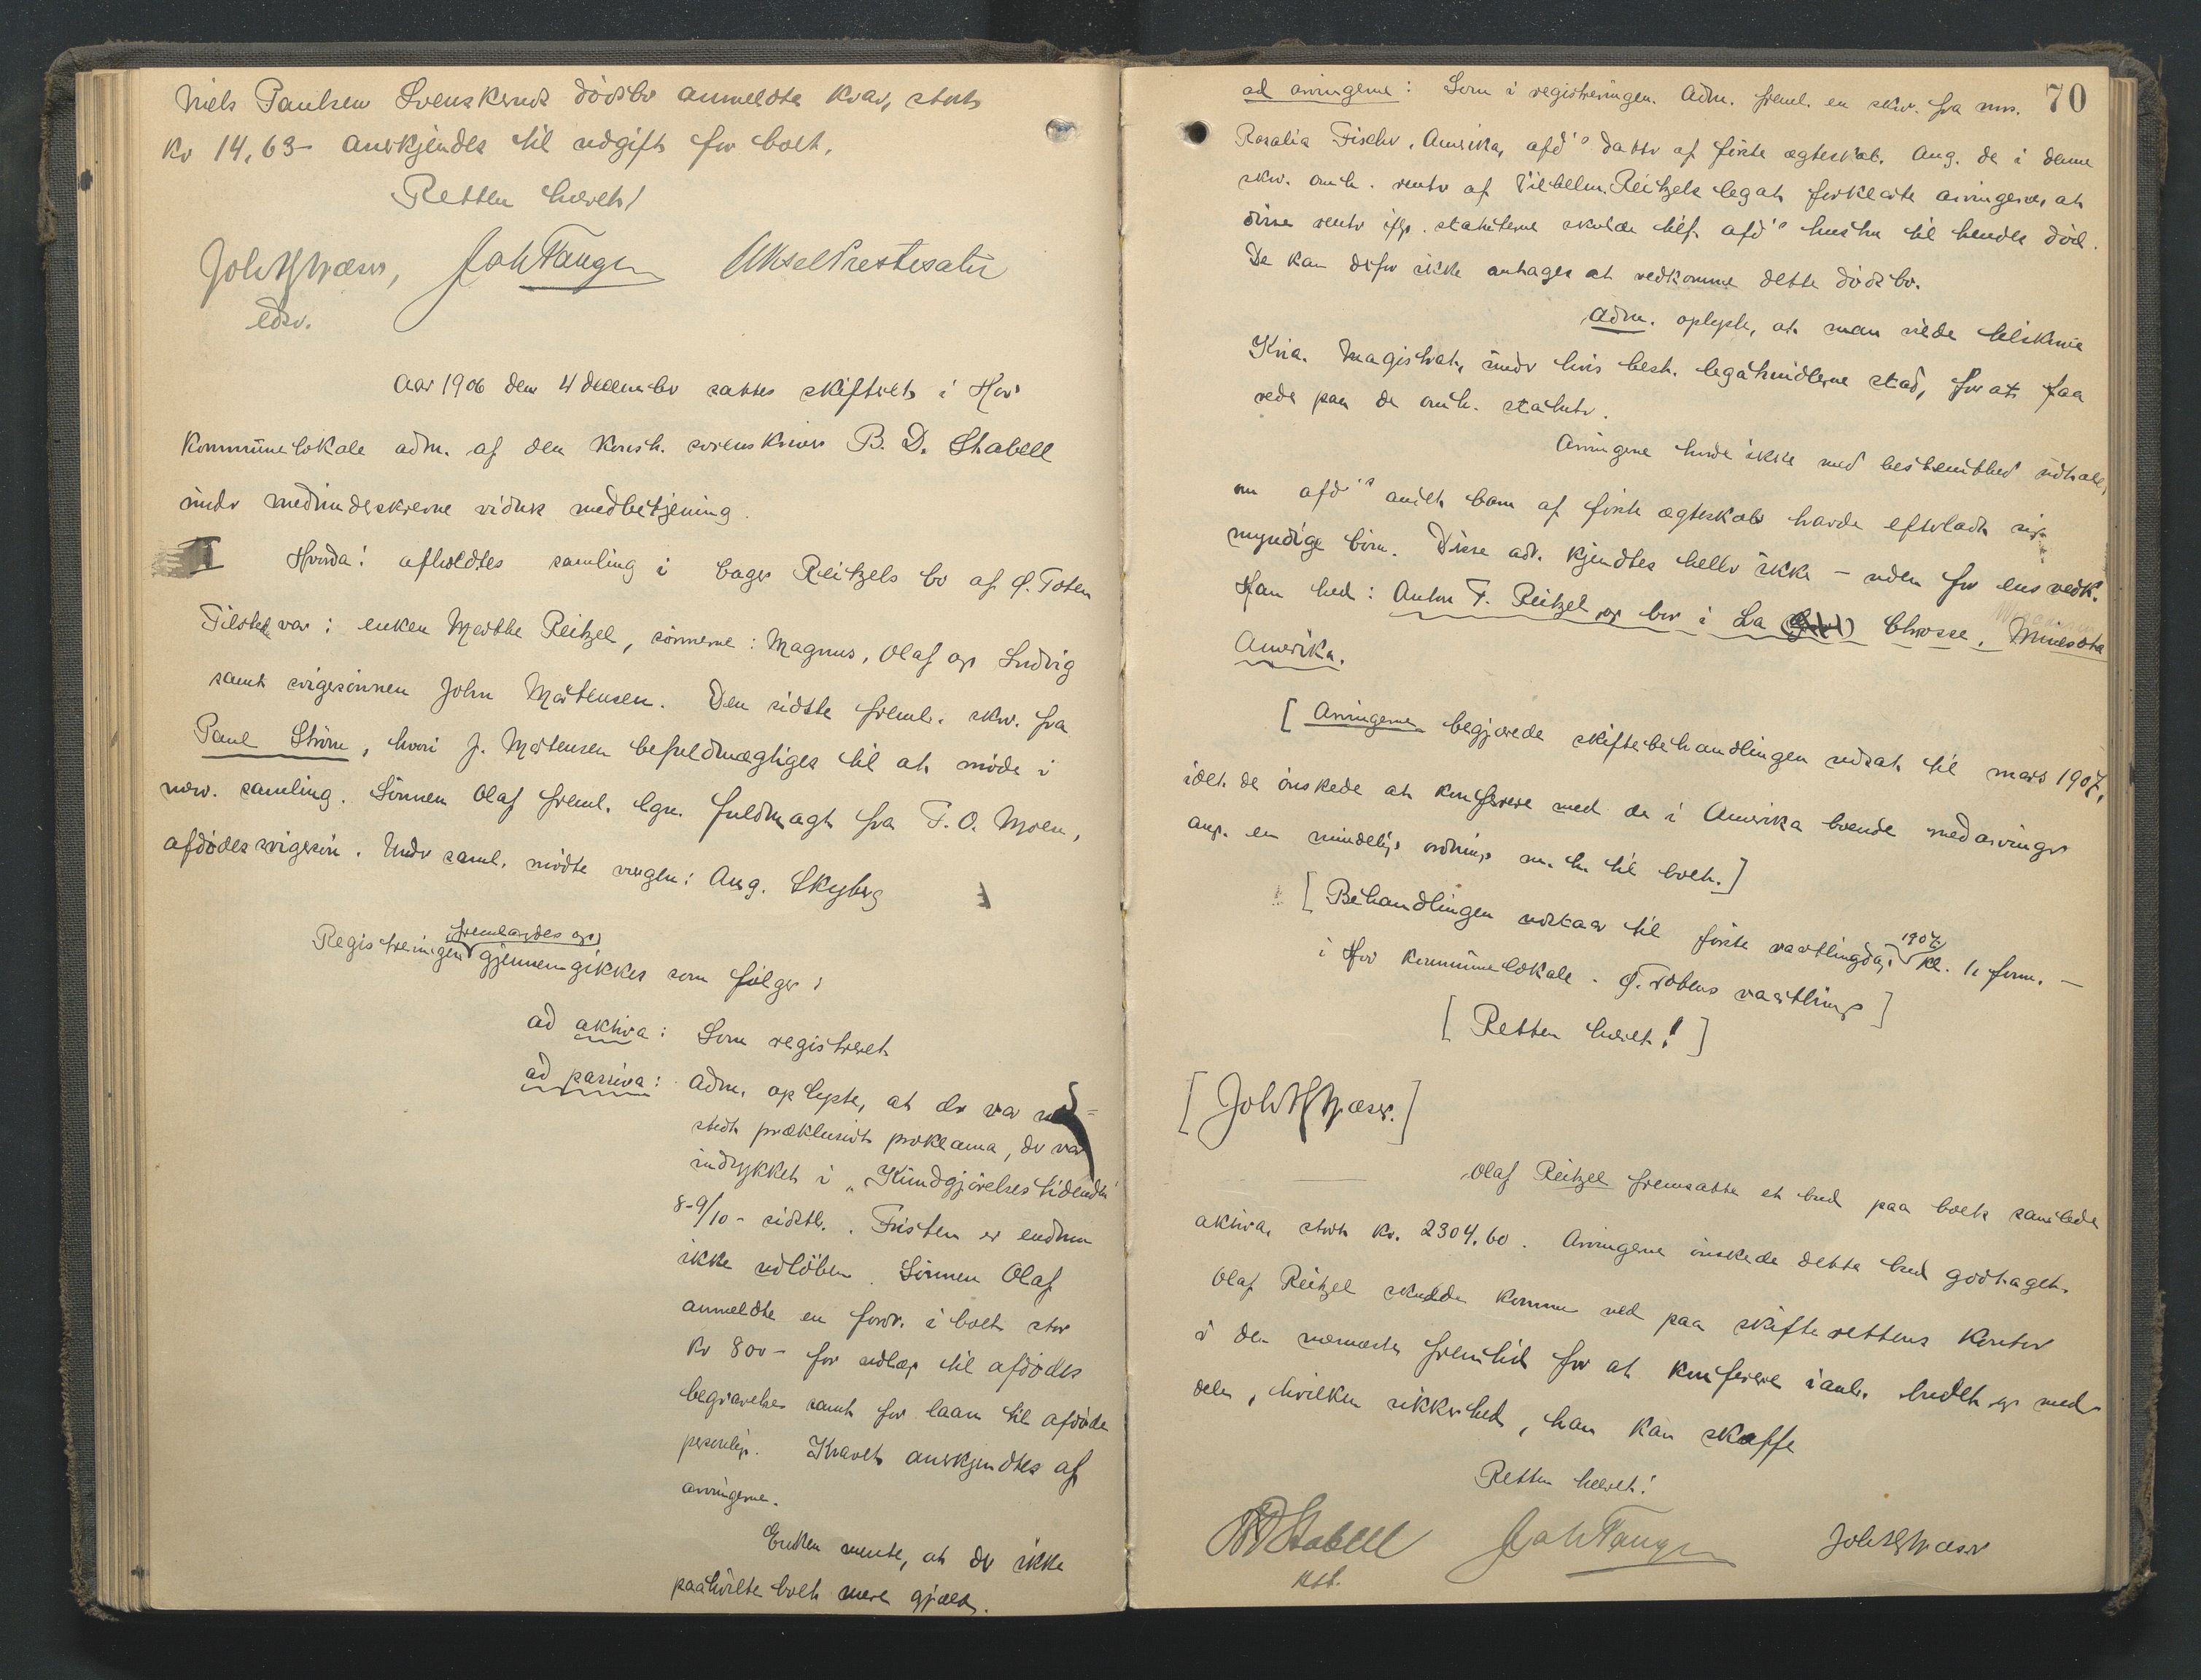 Niels Paulsen Svenskeruds dödsbo anmeldte krav, stort
kr 14,63 - anerkjendes til udgift for boet.
Retten hævet!
Joh Tangen Aksel Prestesater
edsv.
Aar 1906 den 4 december sattes skifteret i Hov
kommunelokale adm. af den konst. sorenskriver B. D. Stabell
under medunderskrevne vidners medbetjening.
Hvorda! afholdtes samling i bager Reitzels bo af Ø. Toten
Tilstede var: enken Marthe Reitzel, sönnerne: Magnus, Olaf og Ludvig
samt svigersönnen John Mortensen. Den sidste freml. skr. fra
Paul Ström, hvori J. Mortensen befuldmægtiges til at möde i
nærv. samling. Sönnen Olaf freml. lign. fuldmagt fra T. O. Moen,
afdödes svigersön. Under saml. mödte værgen: Aug. Skyberg
fremlagdes og
Registreringen gjennemgikkes som fölger:
ad aktiva: Som registreret
ad passiva: Adm. oplyste, at der var ud=
stedt præklusivt proklama, der var
indrykket i "Kundgjörelsestidende"
8-9/10 - sidstl. Fristen er endnu
ikke udlöben. Sönnen Olaf
anmeldte en fordr. i boet stor
kr 800 - for udlæg til afdödes
begravelse samt for laan til afdöde
personlig. Kravet anerkjendtes af
arvingerne.
Enken mente, at der ikke
paahvilte boet mere gjæld.
70
ad arvingerne: Som i registreringen. Adm. freml. en skr. fra mrs.
Rosalia Fischer, Amerika, afd's datter af förste ægteskab. Ang. de i denne
skr. omh. renter af Vilhelm Reitzels legat forklarte arvingerne, at
disse renter iflg. statuterne skulde tilf. afd's hustru til hendes död.
De kan derfor ikke antages at vedkomme dette dödsbo.
Adm. oplyste, at man vilde tilskrive
Kria. Magistrat, under hvis best. legatmidlerne stod, for at faa
rede paa de omh. statuter.
Arvingerne turde ikke med bestemthed udtale,
om afd's andet barn af förste ægteskab havde efterladt sig
myndige börn. Disse adr. kjendtes heller ikke - uden for ens vedk.
Han hed: Anton F. Reitzel og bor i La Chrosse, Minesota
Amerika.
[Arvingerne begjærede skiftebehandlingen udsat til mars 1907,
idet de önskede at konferere med de i Amerika boende medarvinger
ang. en mindelig ordning m. h. til boet.]
[Behandlingen udstaar til förste vaartingdag 1907 kl. 11 form. -
i Hov kommunelokale. Ø. Totens vaarthing]
[Retten hævet!]
Olaf Reitzel fremsatte et bud paa boets samlede
aktiva, stort kr. 2304.60. Arvingerne önskede dette bud godtaget.
Olaf Reitzel skulde komme ned paa skifterettens kontor
i den nærmeste fremtid for at konferere i anl. budet og med-
dele, hvilken sikkerhed, han kan skaffe
Retten hævet!
BDStabell Joh Tangen
kst.